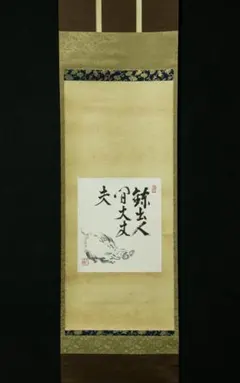 錬出人
間大丈
夫